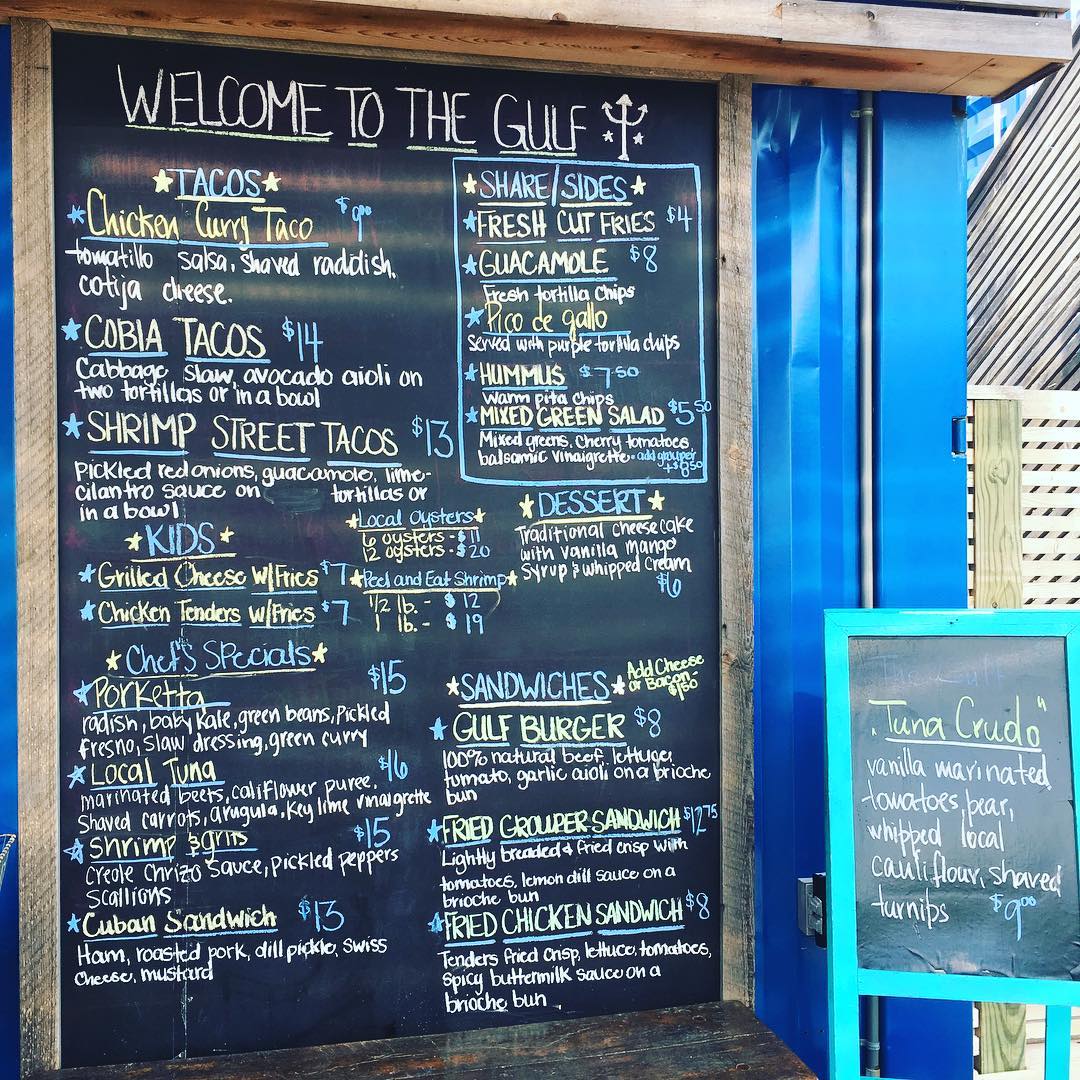 WELCOME TO THE GULF
TACOS
Chicken Curry Taco $9.00
tomatillo salsa, shaved raddish,
cotija cheese.
COBIA TACOS $14
Cabbage slaw, avocado aioli on
two tortillas or in a bowl
SHRIMP STREET TACOS $13
Pickled red onions, guacamole, lime-
cilantro sauce on tortillas or
in a bowl
KIDS
Grilled Cheese w/Fries $7
Chicken Tenders w/Fries $7
Local Oysters
6 oysters - $11
12 oysters - $20
Peel and Eat Shrimp
1/2 lb. - $12
1 lb. - $19
Chef's Specials
Porketta $15
radish, baby kale, green beans, Pickled
fresno, slaw dressing, green curry
Local Tuna $16
marinated beets, califlower puree,
Shaved carrots, arugula, Key lime vinaigrette
Shrimp & grits $15
creole chrizo sauce, pickled peppers
scallions
Cuban Sandwich $13
Ham, roasted pork, dill pickle, swiss
cheese, mustard
SHARE/SIDES
FRESH CUT FRIES $4
GUACAMOLE $8
Fresh tortilla chips
Pico de gallo
served with purple tortilla chips
HUMMUS $7.50
warm pita chips
MIXED GREEN SALAD $5.50
Mixed greens, cherry tomatoes,
balsamic vinaigrette - add grouper
+$8.50
DESSERT
Traditional cheesecake
with vanilla mango
syrup & whipped cream
$6
SANDWICHES
Add Cheese
or Bacon -
$1.50
GULF BURGER $8
100% natural beef, lettuce,
tomato, garlic aioli on a brioche
bun
FRIED GROUPER SANDWICH $12.75
Lightly breaded & fried crisp with
tomatoes, lemon dill sauce on a
brioche bun
FRIED CHICKEN SANDWICH $8
Tenders fried crisp, lettuce, tomatoes,
spicy buttermilk sauce on a
brioche bun
The Gulf
"Tuna Crudo"
vanilla marinated
tomatoes, pear,
whipped local
cauliflour, shaved
turnips $9.00